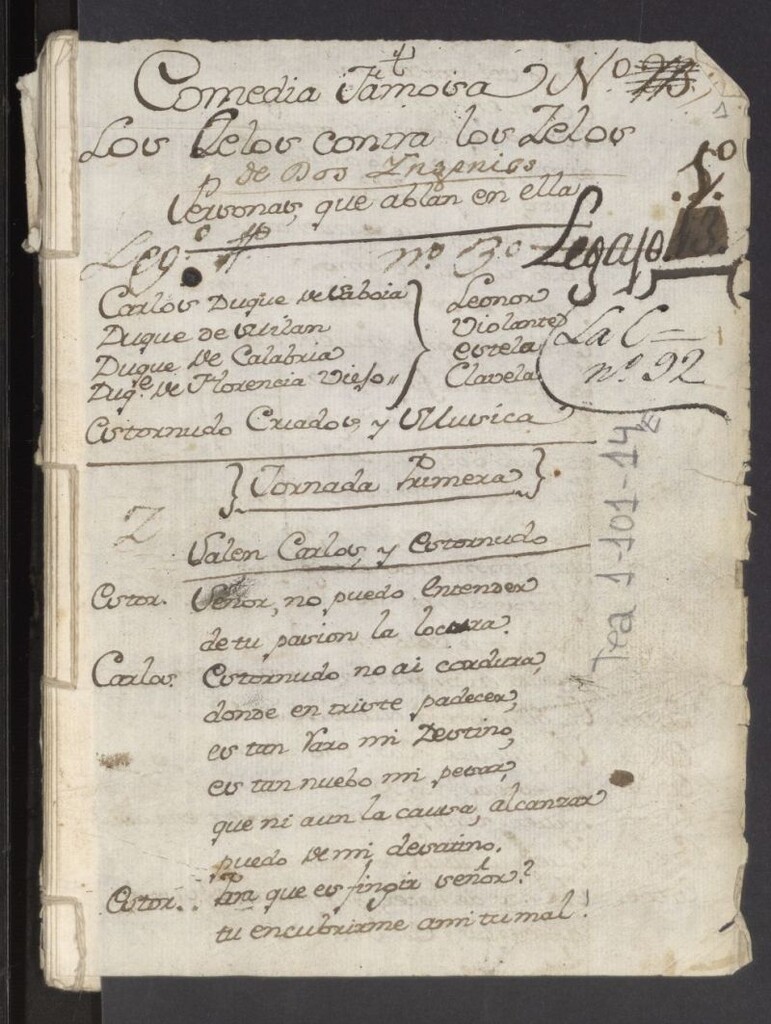 Comedia Famosa Nº
Los Zelos contra los Zelos
de Dos Yngenios
Personas, que ablan en ella
1º
Leg.º nº 3º Legajo 13.
Carlos Duque de Saboia
Duque de Milan
Duque de Calabria
Duqe. de Florencia Viejo
Leonor
Violante
Estela
Clavela
La C
nº 92
Estornudo Criados, y Musica
Jornada Primera
Salen Carlos, y Estornudo
Estor. Señor, no puedo Entender
de tu pasion la locura.
Carlos. Estornudo no ai cordura,
donde en triste padecer,
es tan Raro mi Destino,
es tan nuebo mi pesar,
que ni aun la causa, alcanzar
puedo de mi desatino.
Estor.. Para que es fingir señor?
tu encubrirme a mi tu mal!
Tea 1-101-14